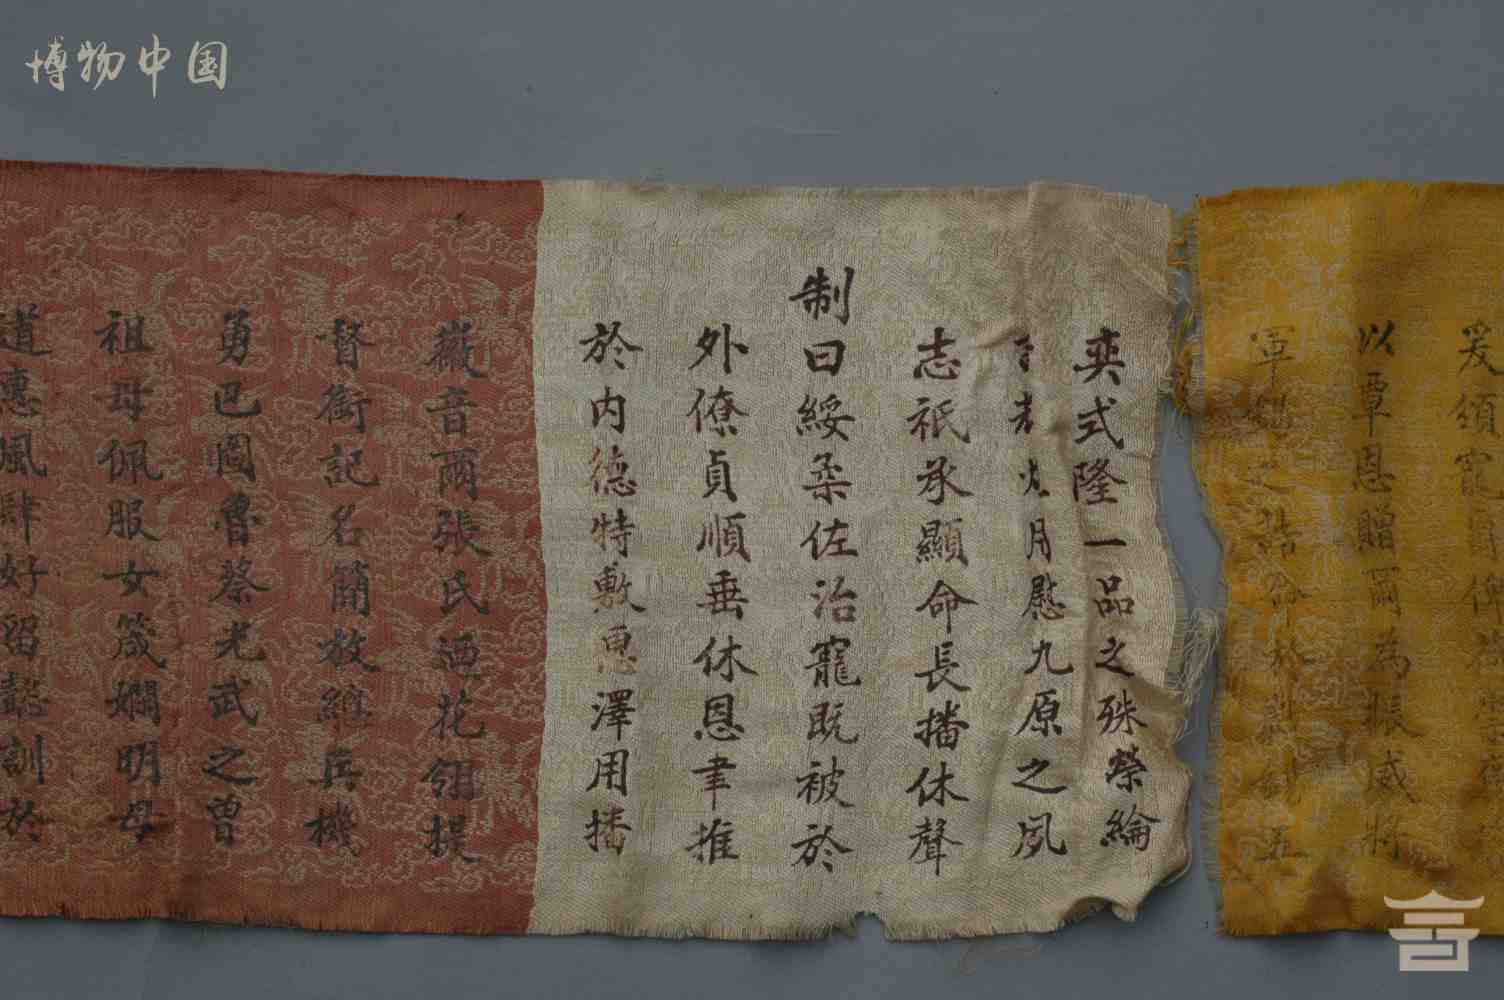 博物中国
爰頒寵
以覃恩贈爾為振威將
軍錫之誥命於戲制五
奕式隆一品之殊榮綸
月慰九原之夙
志祇承顯命長播休聲
制曰綏柔佐治寵既被於
外僚貞順垂休恩聿推
於内德特敷惠澤用播
徽音爾張氏迺花翎提
督銜記名簡放總兵機
勇巴圖魯蔡光武之曾
祖母佩服女箴嫻明母
道惠風肆好留懿訓於